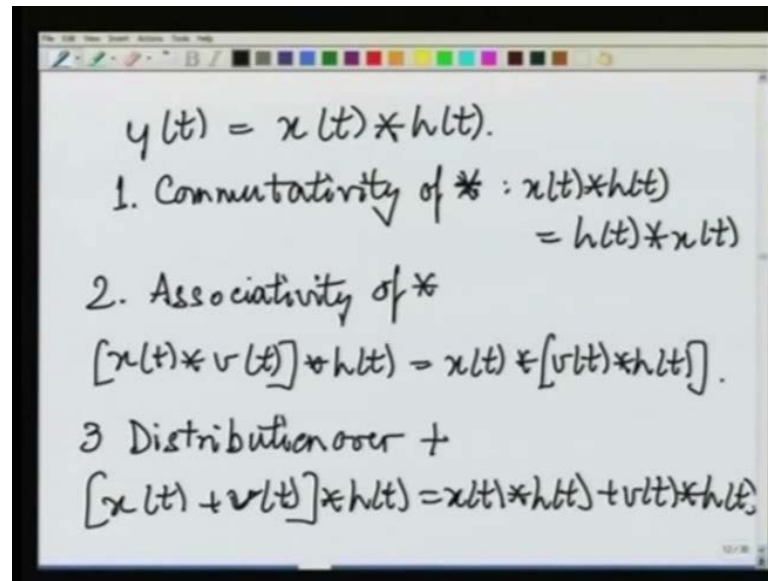 File Edit View Insert Actions Tools Help
B I
y(t) = x(t)*h(t).
1. Commutativity of * : x(t)*h(t)
= h(t)*x(t)
2. Associativity of *
[x(t)*v(t)]*h(t) = x(t)*[v(t)*h(t)].
3 Distribution over +
[x(t)+v(t)]*h(t)=x(t)*h(t)+v(t)*h(t)